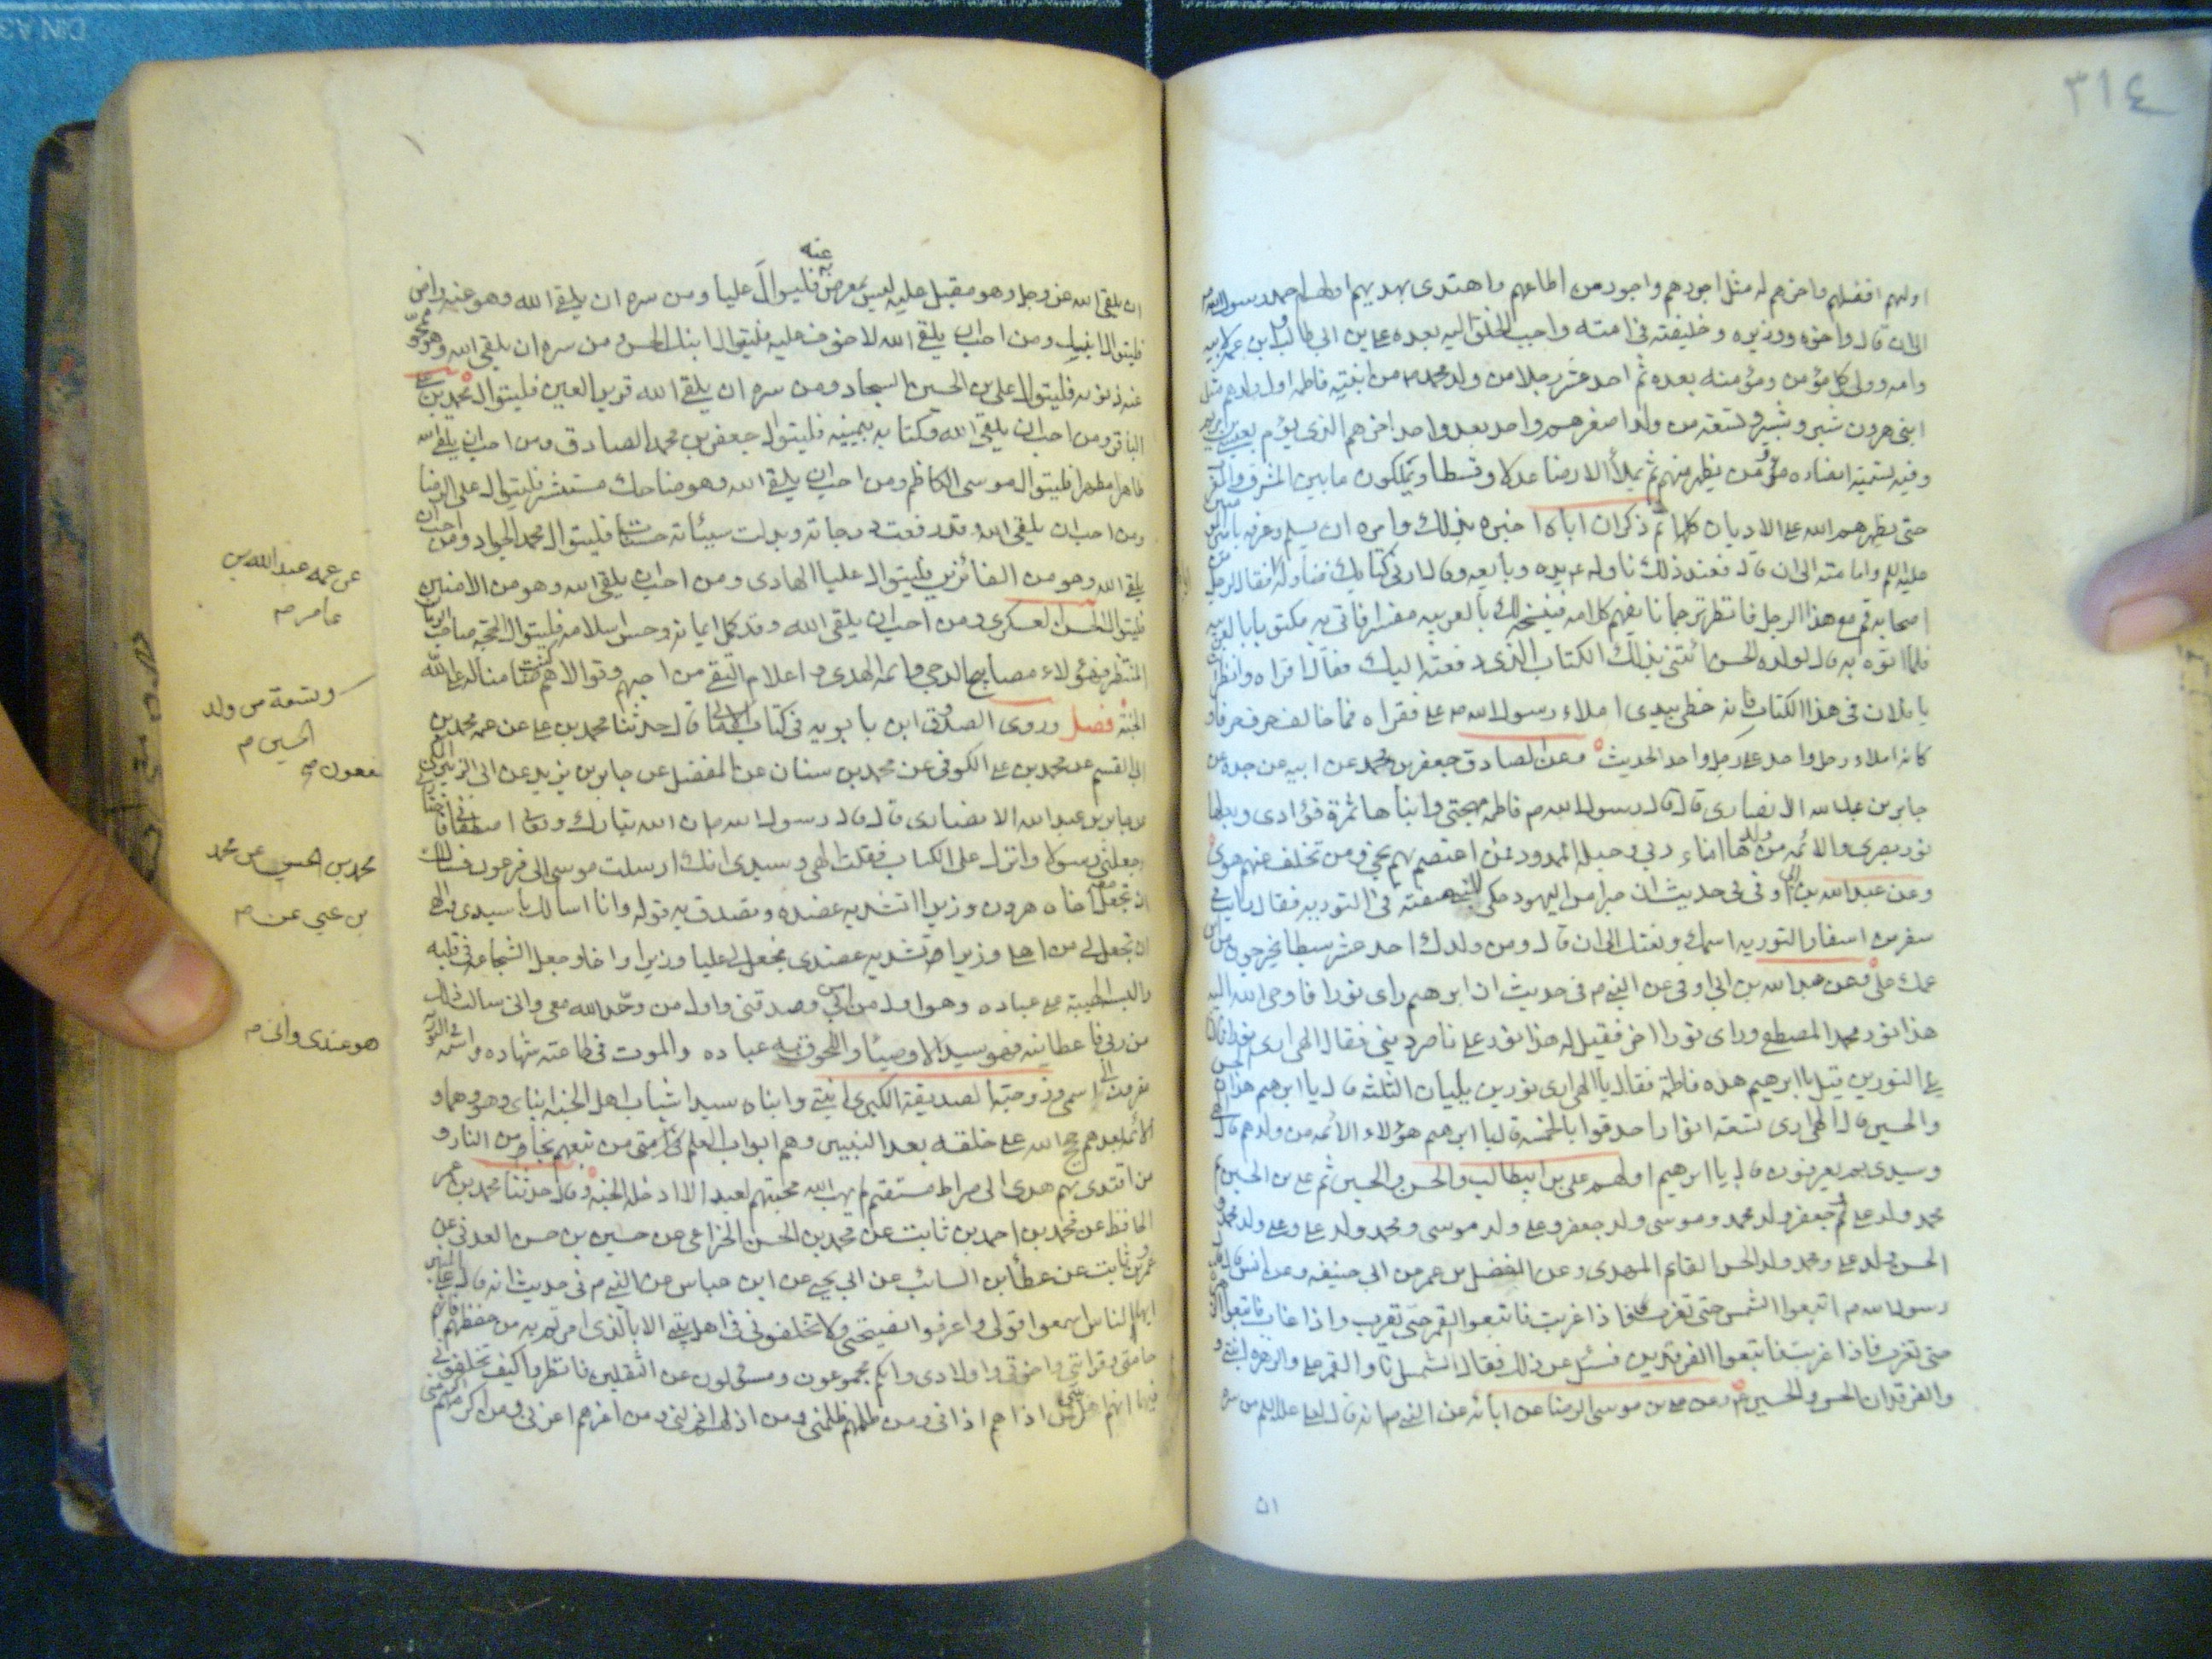 ٣١٤
اولهم افضلهم واخرهم له مثل اجورهم واجور من اطاعهم واهتدى بهديهم اولهم احمد رسول الله
الى ان قال واخوه ووزيره وخليفته في امته واحب الخلق اليه بعده علي بن ابي طالب ابن عمه لابيه
وامه وولي كل مؤمن ومؤمنة بعده ثم احد عشر رجلا من ولد محمد من ابنته فاطمه اول ولدهم مثل
ابنى هرون شبر وشبير وتسعة من ولد اصغرهم واحد بعد واحد اخرهم الذى يؤم بعيسى بن مريم
وفيه تسمية انصاره ومن يظهر منهم ثم يملأ الارض عدلا وقسطا ويملكون ما بين المشرق والمغرب
حتى يظهرهم الله على الاديان كلها ثم ذكر ان اباه اخبره بذلك وامره ان يسلم
عليه الم وامامته الى ان قال فعند ذلك ناوله يده وبايعه وقال ارنى كتابك فناوله فقال لرجل من
اصحابه قم مع هذا الرجل فانظر ترجمانا يفهم كلامه فينسخه لك بالعربيه مفسرا فاتى به مكتوبا بالعربيه
فلما اتوه به قال لولده الحسن ائتنى بذلك الكتاب الذى دفعته اليك فقال اقراه وانظر
يا فلان في هذا الكتاب فانه خطى بيدى املاء رسول الله ص على فقراه فما خالف حرف حرفا
كانه املاء رجل واحد على رجل واحد الحديث وعن الصادق جعفر بن محمد عن ابيه عن جده عن
جابر بن عبد الله الانصارى قال قال رسول الله م فاطمه مهجتى وابناها ثمرة فؤادى وبعلها
نور بصرى والائمه من ولدها امناء ربى وحبله الممدود فمن اعتصم بهم نجى ومن تخلف عنهم هوى
وعن عبد الله بن ابى اوفى فى حديث ان حبرا من اليهود حكى للنبى صفته فى التوريه فقال
سفر من اسفار التوريه اسمك ونعتك الى ان قال ومن ولدك احد عشر سبطا يخرجون من ابن
عمك على وعن عبد الله بن ابى اوفى عن النبى م فى حديث ان ابرهيم راى نورا فاوحى الله اليه
هذا نور محمد المصطفى وراى نورا اخر فقيل له هذا نور على ناصر دينى فقال الهى ارى نورا
على النورين قيل يا ابرهيم هذه فاطمة فقال يا الهى ارى نورين يليان الثلثة قال يا ابرهيم هذان الحسن
والحسين قال الهى ارى تسعة انوار احدقوا بالخمسة قال يا ابرهيم هؤلاء الائمه من ولدهم قال
وسيدى بم يعرفون قال يا ابرهيم اولهم على بن ابيطالب والحسن والحسين ثم على بن الحسين ثم
محمد ولد على ثم جعفر ولد محمد وموسى ولد جعفر وعلى ولد موسى ومحمد ولد على وعلى ولد محمد و
الحسن ولد على ومحمد ولد الحسن القائم المهدى وعن المفضل بن عمر عن ابى حنيفه وعن انس قال
رسول الله م اتبعوا الشمس حتى تغرب فاذا غربت فاتبعوا القمر حتى تغرب واذا غاب فاتبعوا
حتى تغرب فاذا غربت فاتبعوا الفرقدين فسئل عن ذلك فقال الشمس انا والقمر على والزهره ابنتى و
والفرقدان الحسن والحسين وعن على بن موسى الرضا عن ابائه عن النبى ص انه قال لعلى عليه السلم من سره
٥١
ان يلقى الله عز وجل وهو مقبل عليه ليس بمعرض عنه فليوال عليا ومن سره ان يلقى الله وهو عنه راض
فليتوال ابنك ومن احب ان يلقى الله لا خوف عليه فليتوال ابنك الحسن ومن سره ان يلقى الله وهو محو
عنه ذنوبه فليتوال على بن الحسين السجاد ومن سره ان يلقى الله قرير العين فليتوال محمد بن على
الباقر ومن احب ان يلقى الله وكتابه بيمينه فليتوال جعفر بن محمد الصادق ومن احب ان يلقى الله
طاهرا مطهرا فليتوال موسى الكاظم ومن احب ان يلقى الله وهو ضاحك مستبشر فليتوال على الرضا
ومن احب ان يلقى الله وقد رفعت درجاته وبدلت سيئاته حسنات فليتوال محمد الجواد ومن احب ان
يلقى الله وهو من الفائزين فليتوال عليا الهادى ومن احب ان يلقى الله وهو من الامنين
فليتوال الحسن العسكرى ومن احب ان يلقى الله وقد كمل ايمانه وحسن اسلامه فليتوال الحجة صاحب الزمان
المنتظر فهؤلاء مصابيح الدجى وائمه الهدى واعلام التقى من احبهم وتوالاهم كنت ضامنا له على الله
الجنة فصل وروى الصدوق ابن بابويه فى كتاب الامالى قال حدثنا محمد بن على عن عمه محمد بن
ابى القسم عن محمد بن على الكوفى عن محمد بن سنان عن المفضل عن جابر بن يزيد عن ابى الزبير المكى
عن جابر بن عبد الله الانصارى قال قال رسول الله م ان الله تبارك وتعالى اصطفانى
وجعلنى رسولا وانزل على الكتاب فقلت الهى وسيدى انك ارسلت موسى الى فرعون فسالك
ان تجعل معه اخاه هرون وزيرا تشد به عضده وتصدق به قوله وانا اسالك يا سيدى والهى
ان تجعل لى من اهلى وزيرا تشد به عضدى فجعل لى عليا وزيرا واخا وجعل الشجاعه فى قلبه
والبسه الهيبة على عباده وهو اول من امن بى وصدقنى واول من وحد الله معى وانى سالت ذلك
من ربى فاعطانيه فهو سيد الاوصياء واللحوق به عباده والموت فى طاعته شهاده واسمه فى التوريه
مقرون الى اسمى وزوجته الصديقة الكبرى ابنتى وابناه سيدا شباب اهل الجنه ابناى وهو وهما و
الائمه بعدهم حجج الله على خلقه بعد النبيين وهم ابواب العلم فى امتى من تبعهم نجا من النار و
من اقتدى بهم هدى الى صراط مستقيم لم يهب الله محبتهم لعبد الا ادخله الجنه وقال حدثنا محمد بن عمر
الحافظ عن محمد بن احمد بن ثابت عن محمد بن الحسن الخزاعى عن حسين بن حسن العدنى عن
عمرو بن ثابت عن عطا بن السائب عن ابى يحيى عن ابن عباس عن النبى م فى حديث انه قال على المنبر
ايها الناس اسمعوا قولى واعرفوا نصيحتى ولا تخلفونى فى اهل بيتى الا بالذى امرتم به من حفظهم فانهم
حامتى وقرابتى واخوتى واولادى وانكم مجموعون ومسئولون عن الثقلين فانظروا كيف تخلفونى
فيهما انهم اهل بيتى فمن اذاهم اذانى ومن ظلمهم ظلمنى ومن اذلهم اذلنى ومن اعزهم اعزنى ومن اكرمهم
عن عمه عبد الله بن
عامر صه
وتسعة من ولد
الحسين م
محمد بن الحسين عن محمد
بن على عن م
هو عندى وانى م